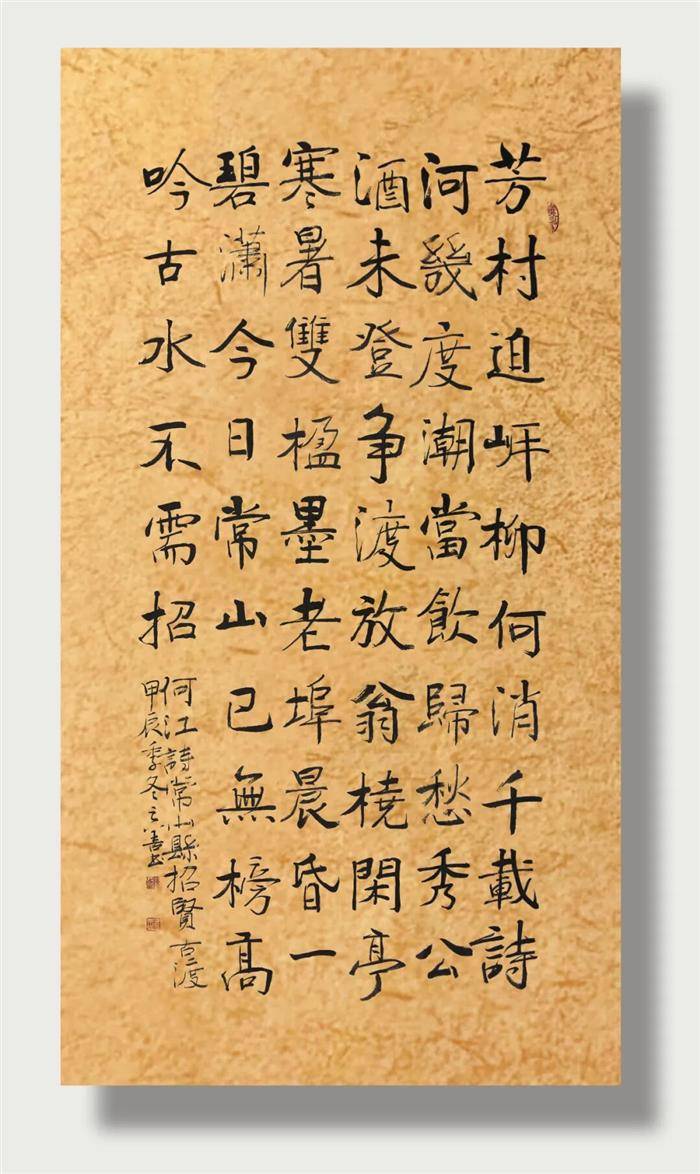 芳村迫岼柳何消千載詩
河幾度潮當飲歸愁秀公
酒未登争渡放翁橈閑亭
寒暑雙楹墨老埠晨昏一
碧瀟今日常山已無榜高
吟古水不需招
何江詩常山縣招賢古渡
甲辰季冬之善書